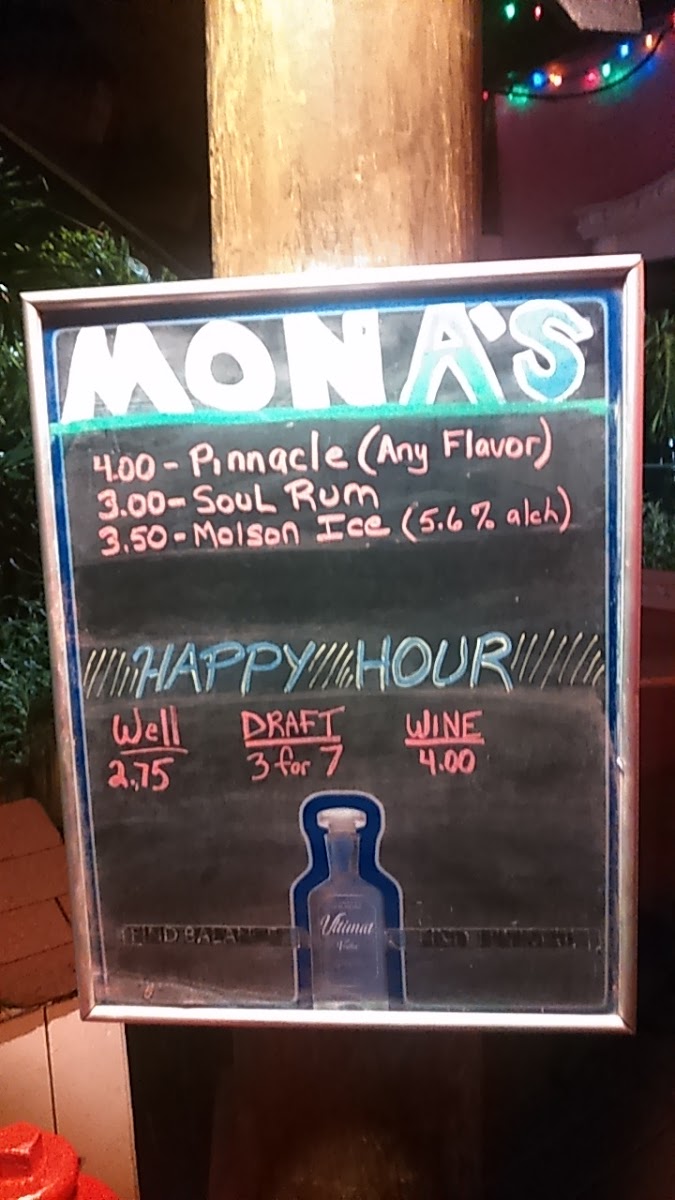 MONA'S
4.00 - Pinnacle (Any Flavor)
3.00 - Soul Rum
3.50 - Molson Ice (5.6% alch)
HAPPY HOUR
Well DRAFT WINE
2.75 3 for 7 4.00
Ultimat
Vodka